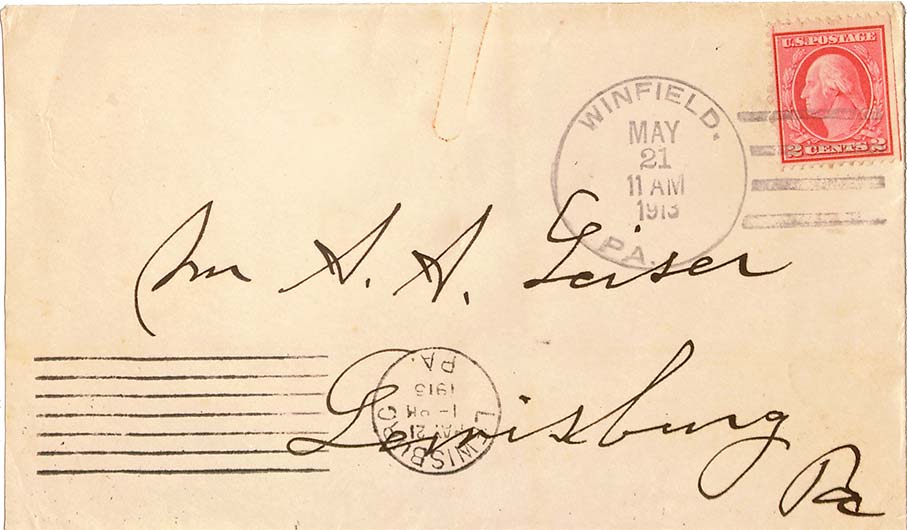 U.S. POSTAGE
2 CENTS 2
WINFIELD.
MAY
21
11 AM
1913
PA.
Mr A. A. Geiser
Lewisburg
Pa
LEWISBURG
MAY 21
1-PM
1913
PA.